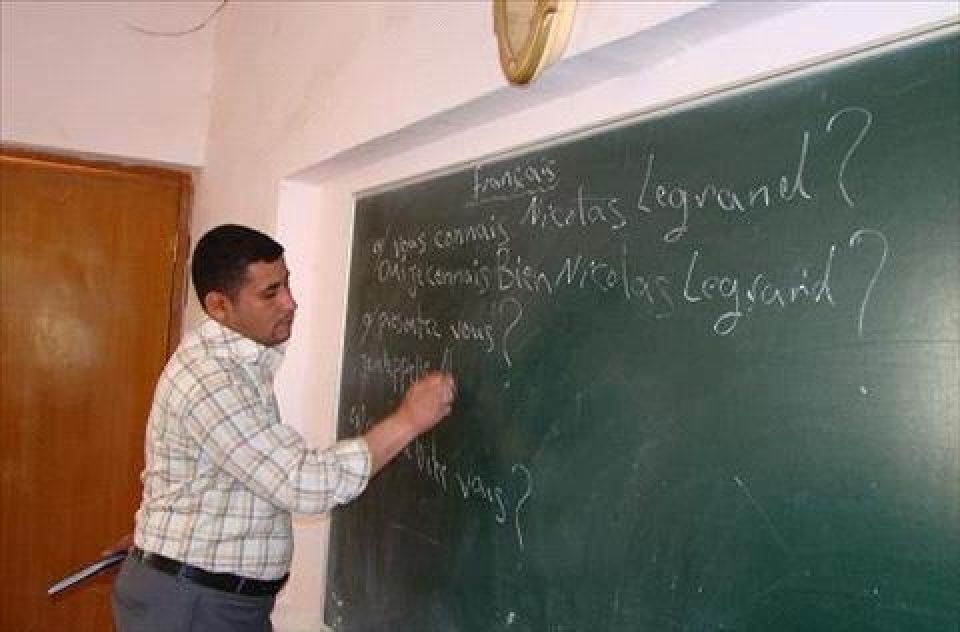 Français
q/ vous connais Nicolas Legrand?
Oui je connais Bien Nicolas Legrand?
q/ présentez vous?
vous?